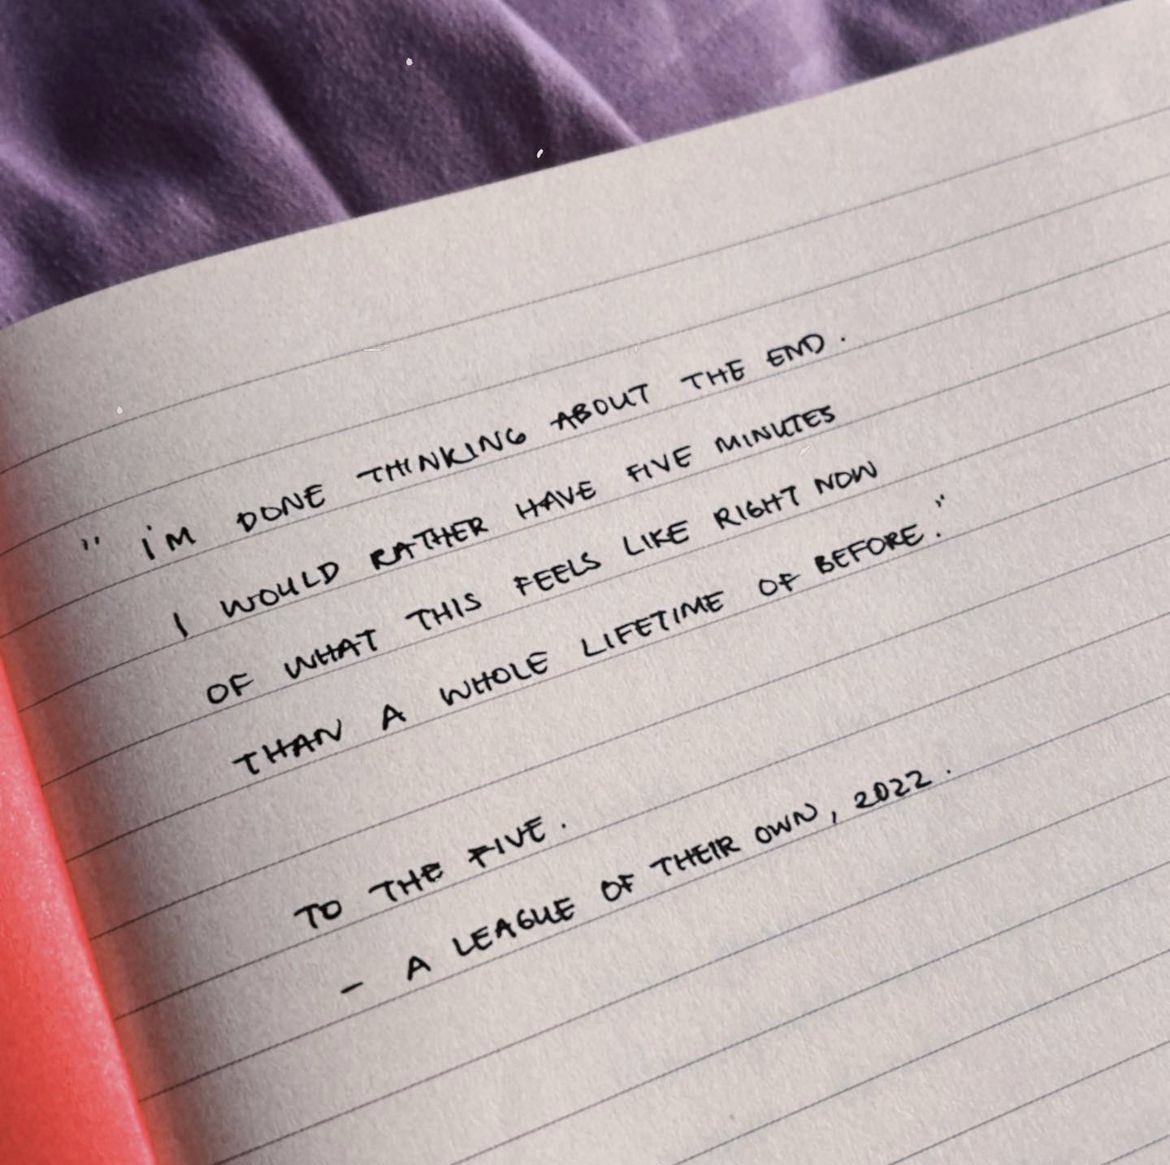 " I'M DONE THINKING ABOUT THE END.
I WOULD RATHER HAVE FIVE MINUTES
OF WHAT THIS FEELS LIKE RIGHT NOW
THAN A WHOLE LIFETIME OF BEFORE."
TO THE FIVE.
- A LEAGUE OF THEIR OWN, 2022.